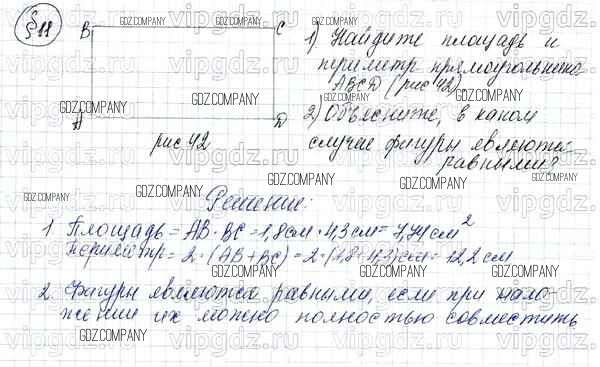 §11
B C
1) Найдите площадь и
периметр прямоугольника
ABCD (рис 42).
A D
рис 42
2) Объясните, в каком
случае фигуры являются
равными?
Решение:
1 Площадь = AB · BC = 1,8см · 4,3см = 7,74см²
Периметр = 2 · (AB + BC) = 2 · (1,8 + 4,3)см = 12,2 см
2. Фигуры являются равными, если при нало
жении их можно полностью совместить
GDZ.COMPANY
vipgdz.ru